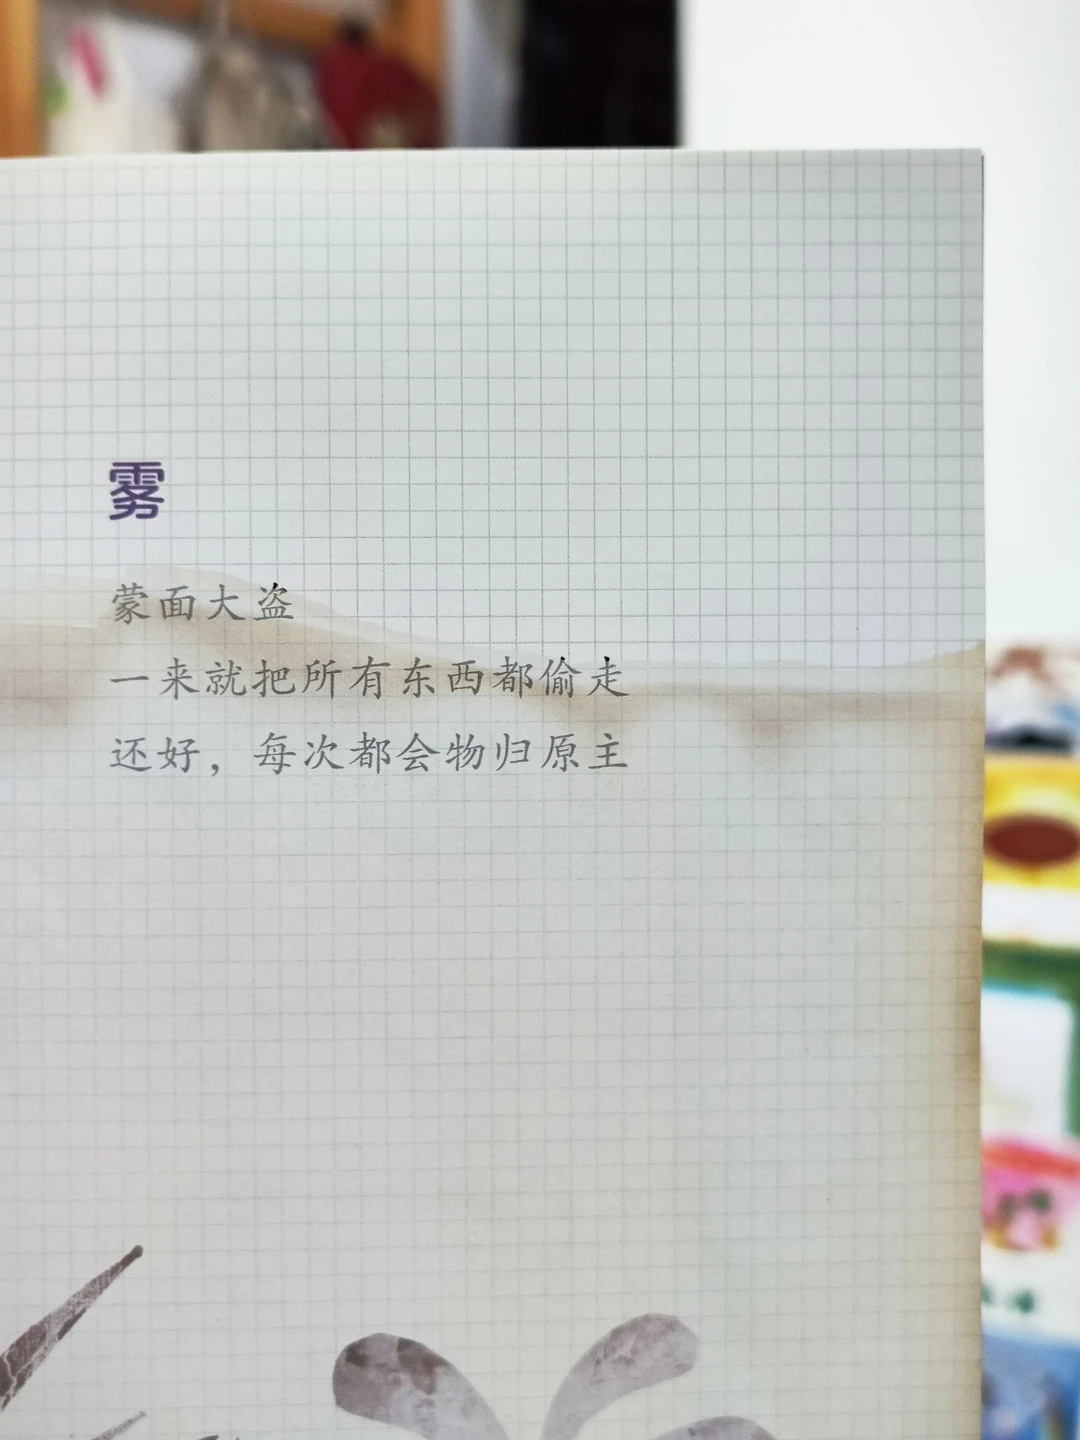 雾
蒙面大盗
一来就把所有东西都偷走
还好，每次都会物归原主